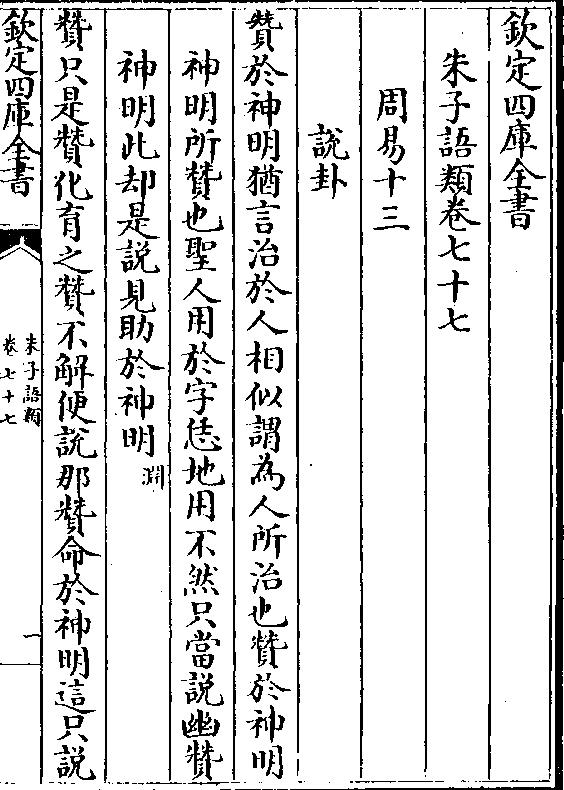 欽定四庫全書
朱子語類卷七十七
周易十三
說卦
贊於神明猶言治於人相似謂為人所治也贊於神明
神明所贊也聖人用於字恁地用不然只當說幽贊
神明此却是說見助於神明淵
贊只是贊化育之贊不解便說那贊命於神明這只說
欽定四庫全書
朱子語類
卷七十七
一